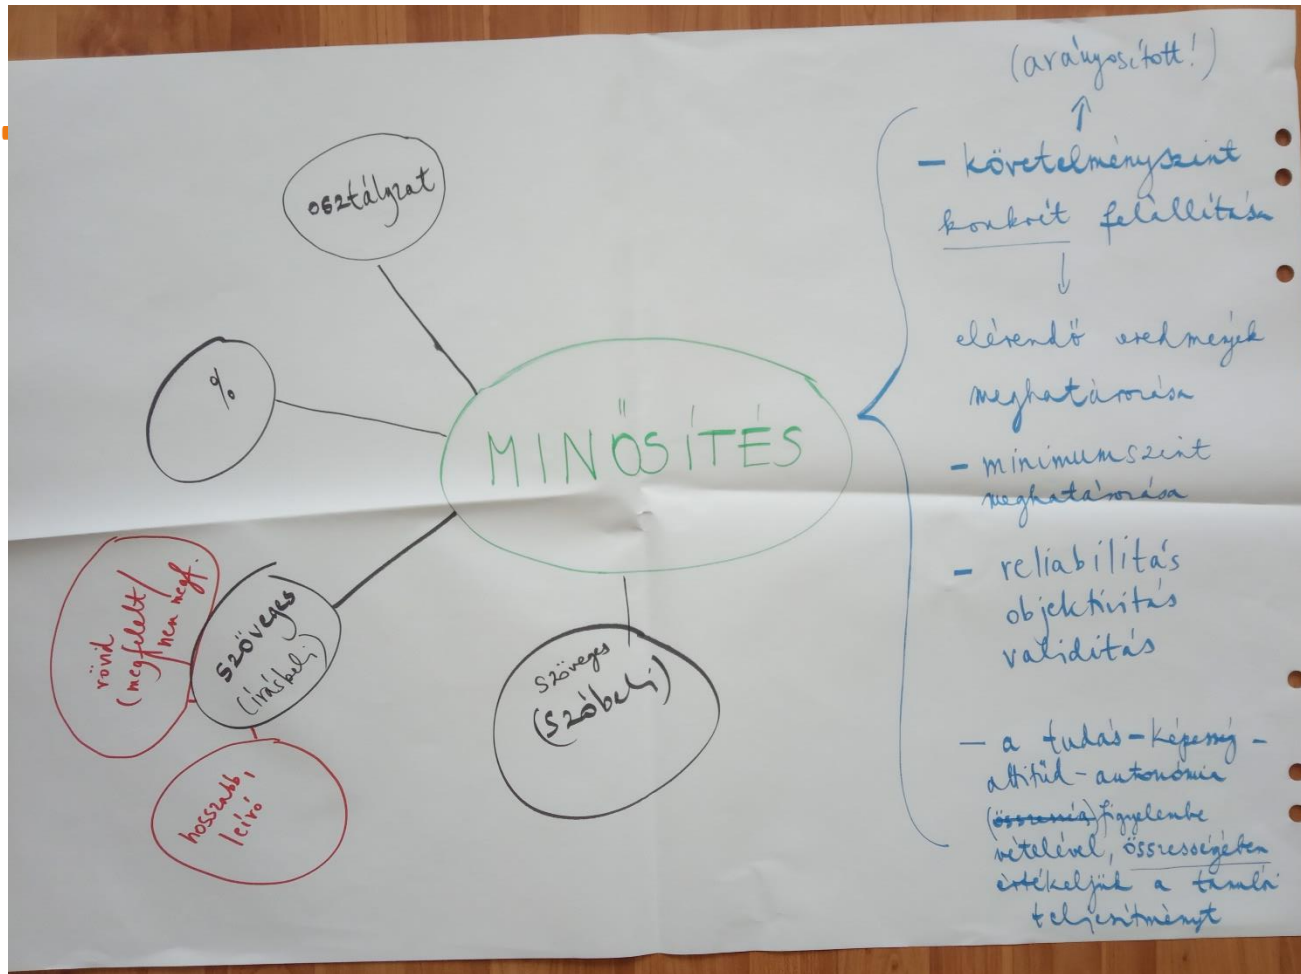 osztályzat
%
MINŐSÍTÉS
szöveges
(írásbeli)
rövid
(megfelelt/
nem megf.
hosszabb,
leíró
szöveges
(szóbeli)
(arányosított!)
- követelményszint
konkrét felállítása
elérendő eredmények
meghatározása
- minimumszint
meghatározása
- reliabilitás
objektivitás
validitás
- a tudás-képesség-
attitűd-autonómia
figyelembe
vételével, összességében
értékeljük a tanulói
teljesítményt